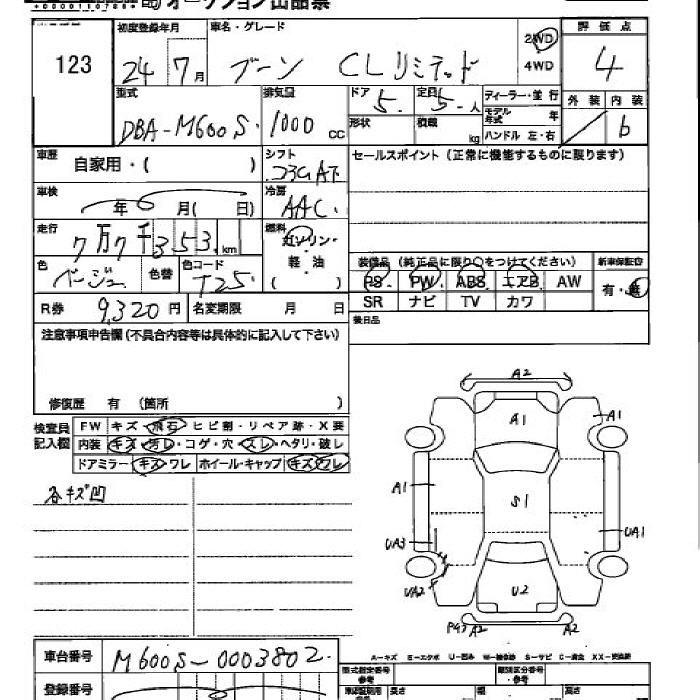 オークション出品票
123
初度登録年月 車名・グレード 2WD 評価点
24 7月 ブーン CLリミテッド 4WD 4
型式 排気量 ドア 定員 ディーラー・並行 外装 内装
DBA-M600S 1000cc 5 5人 モデル年式 年 b
形状 積載 kg ハンドル 左・右
車歴 自家用・( ) シフト コラムAT セールスポイント(正常に機能するものに限ります)
車検 年 月( 日) 冷房 AAC
走行 7万7千353km 燃料 ガソリン・
色 ベージュ 色替 色コード T25 軽・油
( )
装備品(純正品に限り○をつけてください) 新車保証書
PS PW ABS エアB AW 有・無
SR ナビ TV カワ
R券 9,320円 名変期限 月 日 後日品
注意事項申告欄(不具合内容等は具体的に記入して下さい)
修復歴 有 (箇所 )
検査員記入欄 FW キズ・飛石・ヒビ割・リペア跡・X要
内装 キズ・汚レ・コゲ・穴・スレ・ヘタリ・破レ
ドアミラー キズ・ワレ ホイール・キャップ キズ・ワレ
各キズ凹
A2
A1 A1
A1 S1
UA1
UA3
UA2 U2
A2 A2
A-キズ E-エクボ U-凹み W-補修跡 S-サビ C-腐食 XX-交換済
車台番号 M600S-0003802
型式指定番号 参考 類別区分番号 参考
登録番号 長さ 幅 高さ